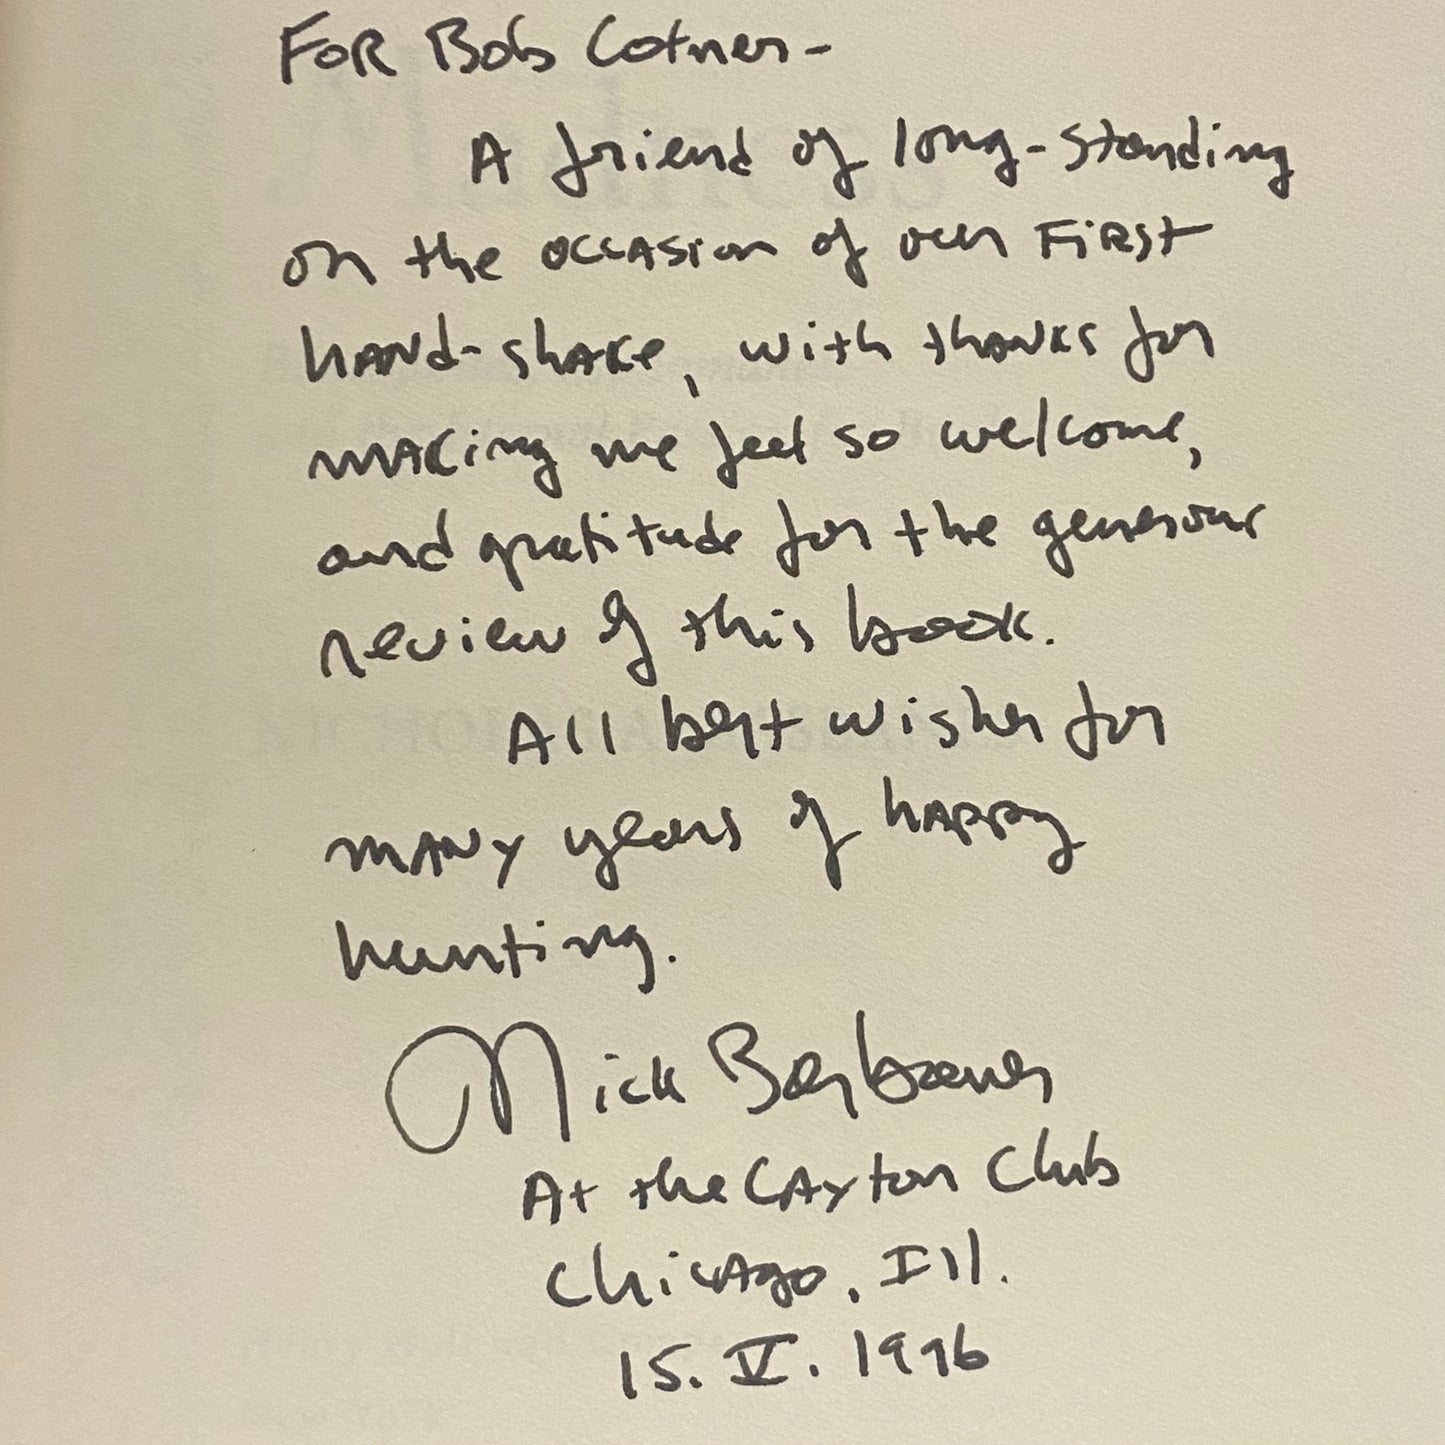 FOR Bob Cotner-
A friend of long-standing
on the occasion of our FiRst
hand-shake, with thanks for
making me feel so welcome,
and gratitude for the generous
review of this book.
All best wishes for
many years of happy
hunting.
Nick Basbanes
At the Caxton Club
Chicago, Ill.
15. V. 1996